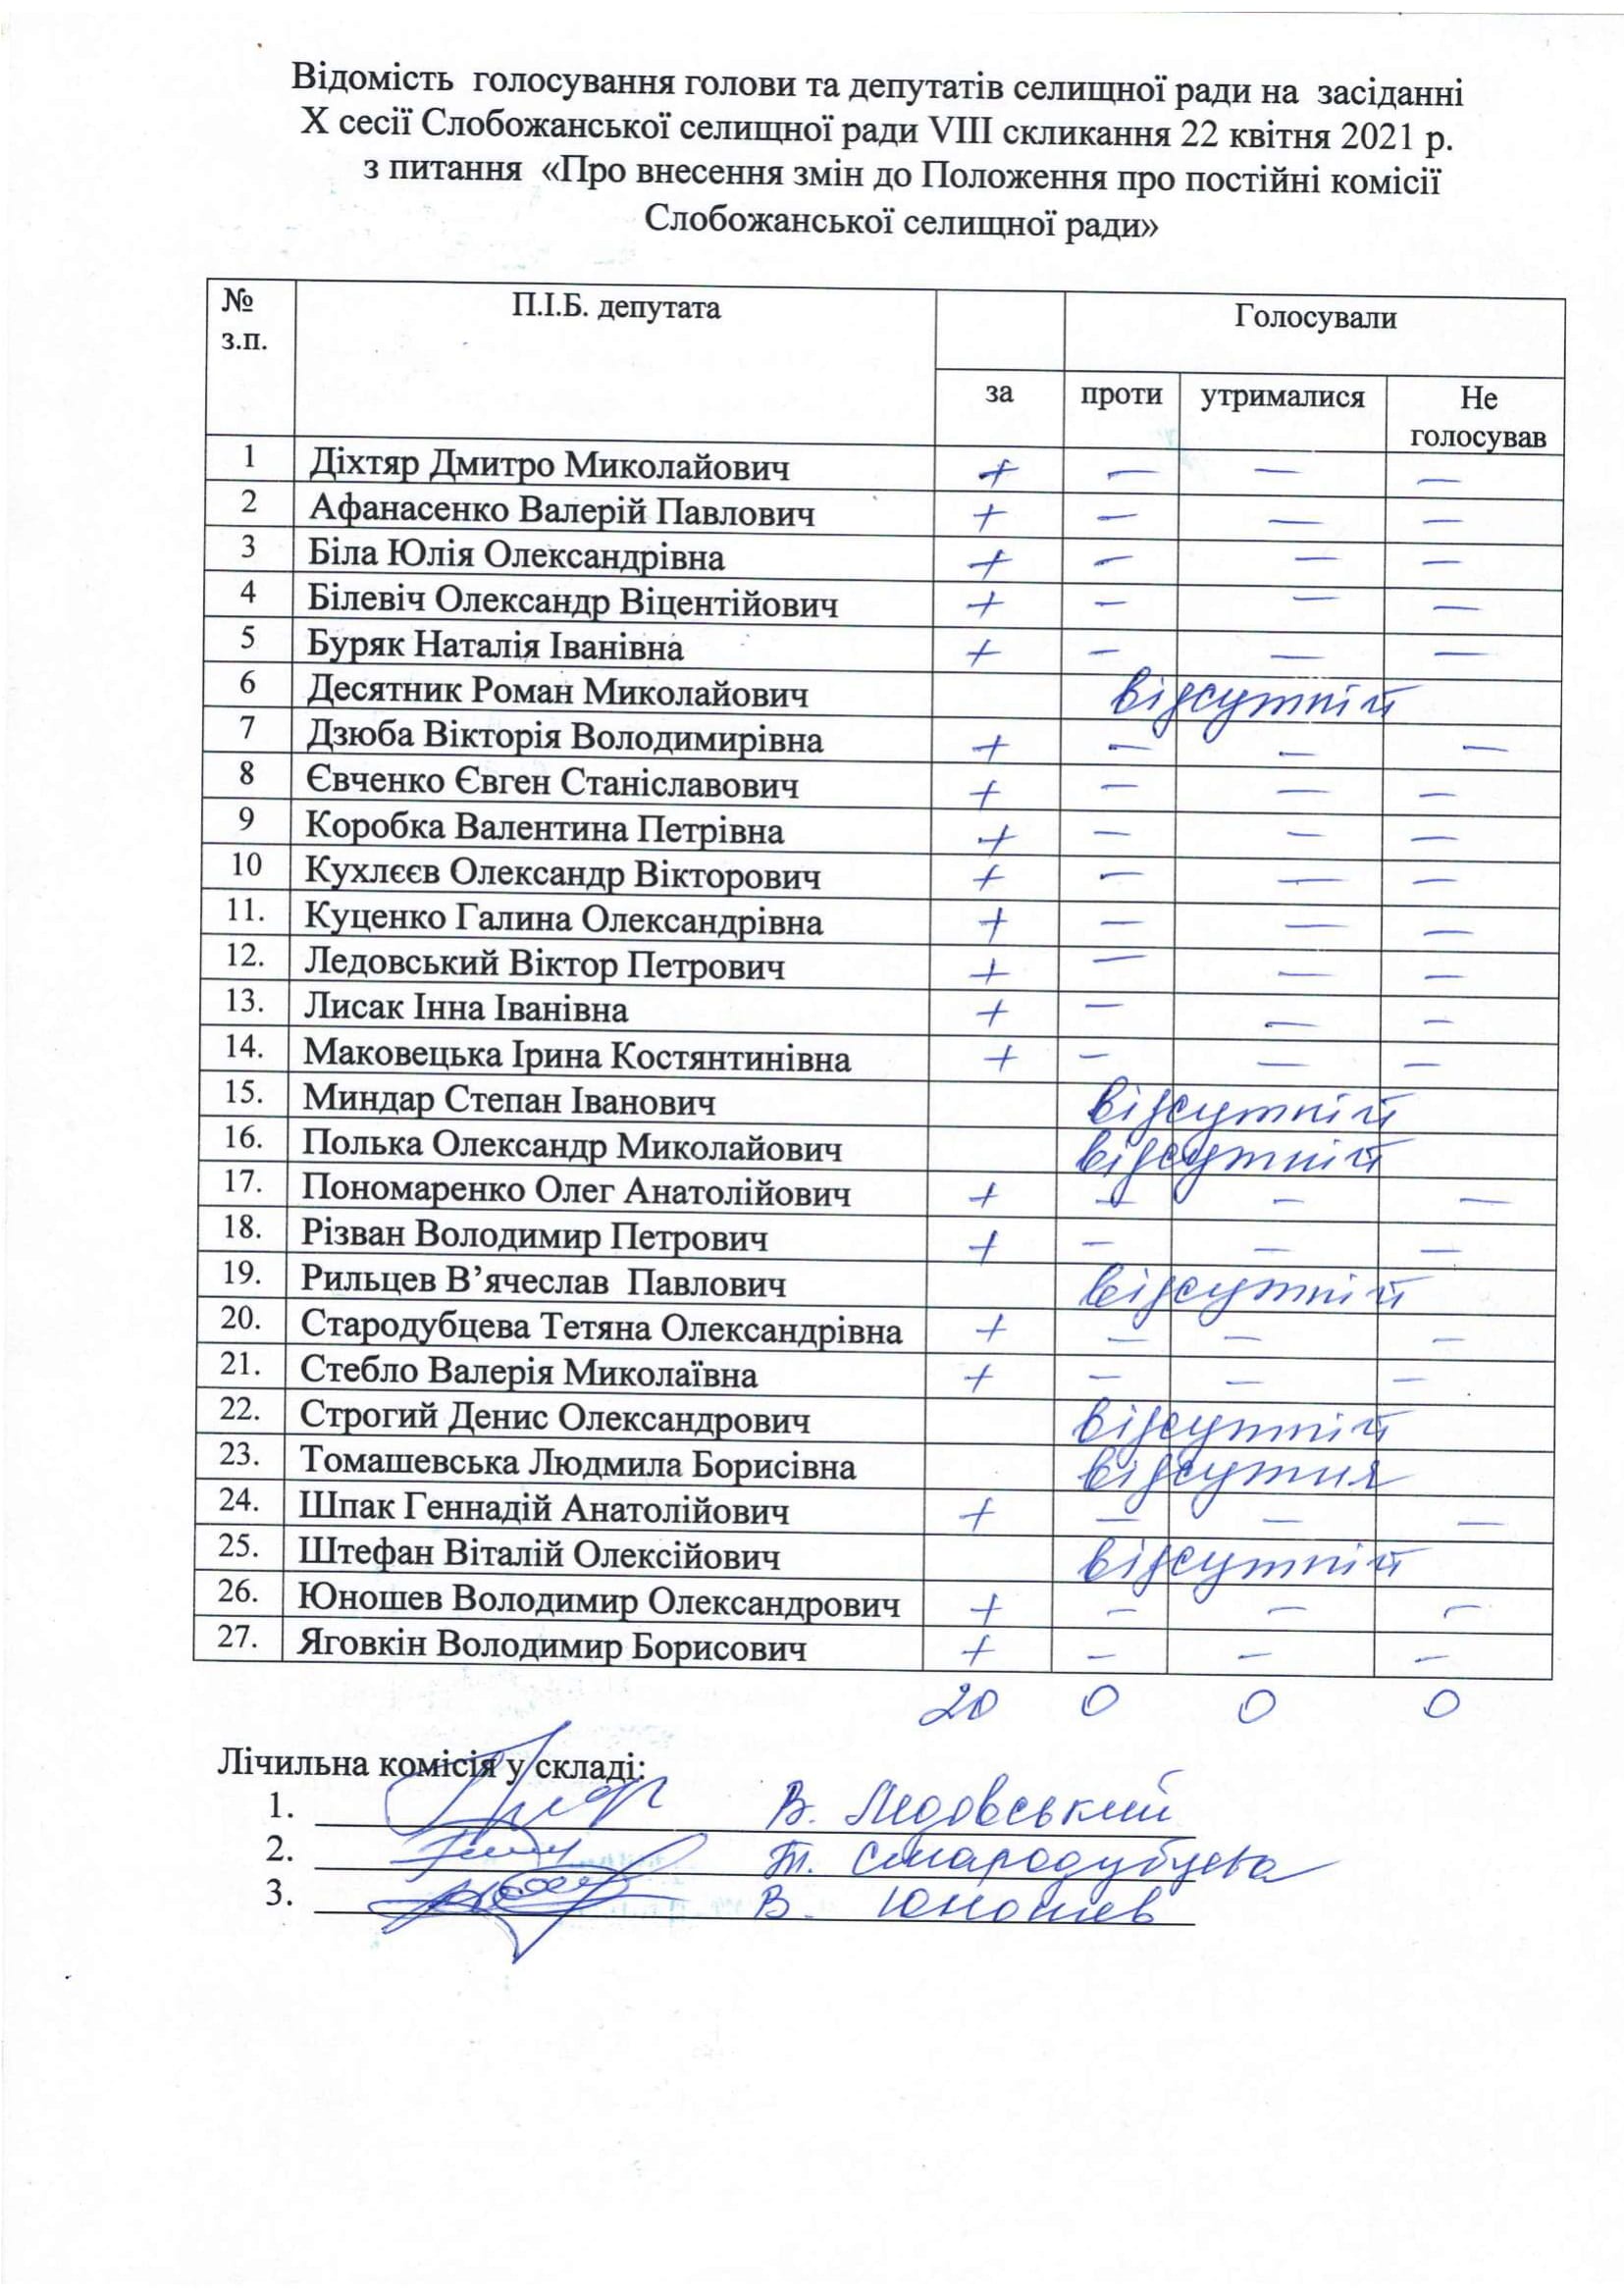 Відомість голосування голови та депутатів селищної ради на засіданні
X сесії Слобожанської селищної ради VIII скликання 22 квітня 2021 р.
з питання «Про внесення змін до Положення про постійні комісії
Слобожанської селищної ради»
№ з.п. П.І.Б. депутата Голосували
за проти утрималися Не голосував
1 Діхтяр Дмитро Миколайович + — — —
2 Афанасенко Валерій Павлович + — — —
3 Біла Юлія Олександрівна + — — —
4 Білевіч Олександр Віцентійович + — — —
5 Буряк Наталія Іванівна + — — —
6 Десятник Роман Миколайович відсутній
7 Дзюба Вікторія Володимирівна + — — —
8 Євченко Євген Станіславович + — — —
9 Коробка Валентина Петрівна + — — —
10 Кухлєєв Олександр Вікторович + — — —
11. Куценко Галина Олександрівна + — — —
12. Ледовський Віктор Петрович + — — —
13. Лисак Інна Іванівна + — — —
14. Маковецька Ірина Костянтинівна + — — —
15. Миндар Степан Іванович відсутній
16. Полька Олександр Миколайович відсутній
17. Пономаренко Олег Анатолійович + — — —
18. Різван Володимир Петрович + — — —
19. Рильцев В’ячеслав Павлович відсутній
20. Стародубцева Тетяна Олександрівна + — — —
21. Стебло Валерія Миколаївна + — — —
22. Строгий Денис Олександрович відсутній
23. Томашевська Людмила Борисівна відсутня
24. Шпак Геннадій Анатолійович + — — —
25. Штефан Віталій Олексійович відсутній
26. Юношев Володимир Олександрович + — — —
27. Яговкін Володимир Борисович + — — —
20 0 0 0
Лічильна комісія у складі:
1. В. Ледовський
2. Т. Стародубцева
3. В. Юношев